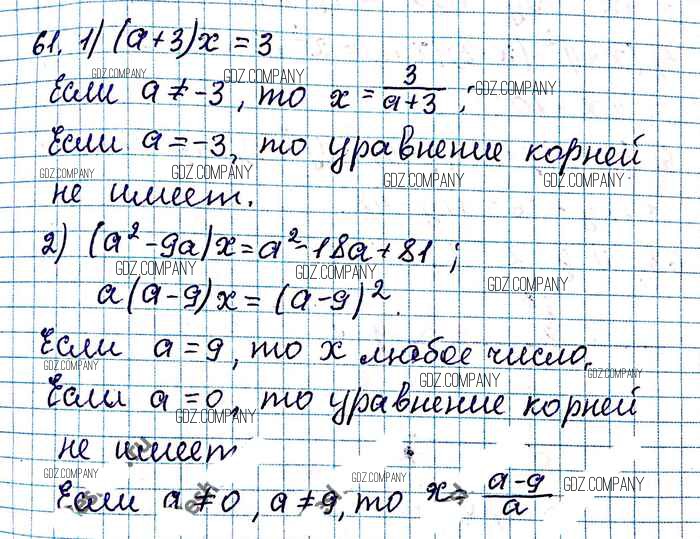 61. 1) (a+3)x = 3
GDZ.COMPANY GDZ.COMPANY
Если a ≠ -3, то x = 3/(a+3) ; GDZ.COMPANY
Если a = -3, то уравнение корней
GDZ.COMPANY GDZ.COMPANY GDZ.COMPANY GDZ.COMPANY
не имеет.
2) (a² - 9a)x = a² - 18a + 81 ;
GDZ.COMPANY GDZ.COMPANY GDZ.COMPANY
a(a-9)x = (a-9)².
Если a = 9, то x любое число.
GDZ.COMPANY GDZ.COMPANY GDZ.COMPANY
Если a = 0, то уравнение корней
GDZ.COMPANY
не имеет
GDZ.COMPANY GDZ.COMPANY GDZ.COMPANY
Если a ≠ 0, a ≠ 9, то x = (a-9)/a